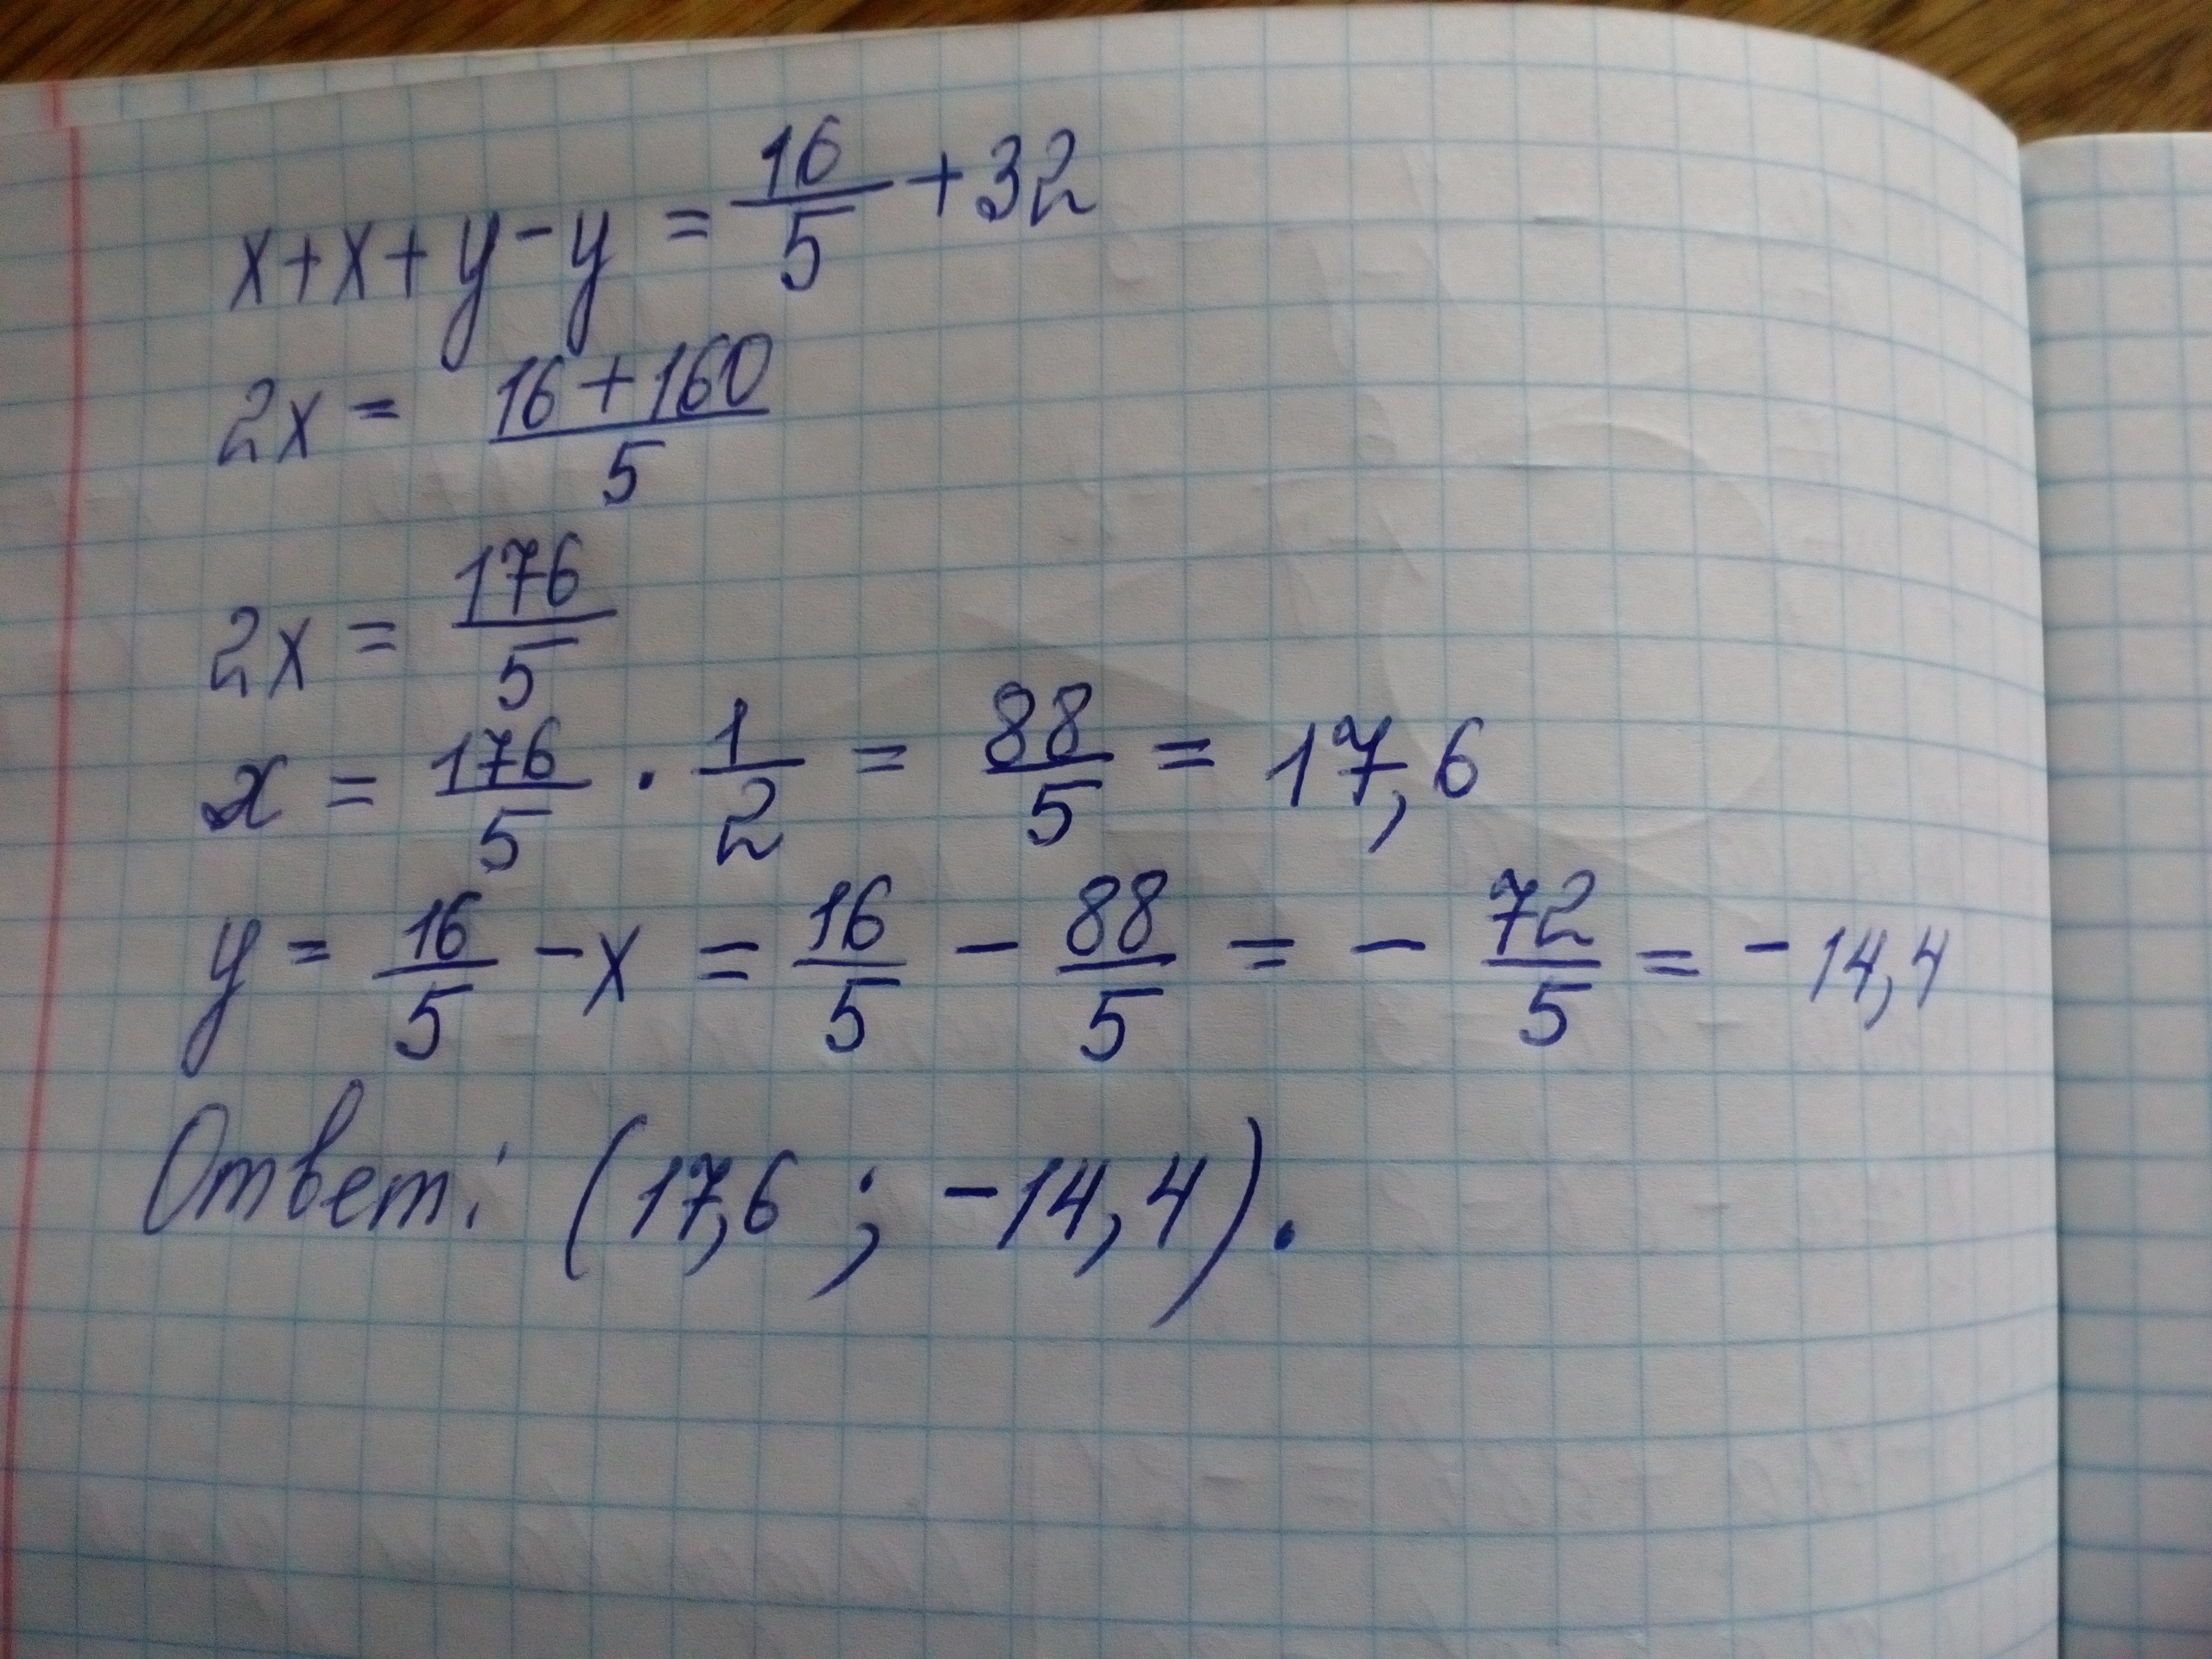 x+x+y-y = 16/5 + 32
2x = (16+160)/5
2x = 176/5
x = 176/5 · 1/2 = 88/5 = 17,6
y = 16/5 - x = 16/5 - 88/5 = - 72/5 = -14,4
Ответ: (17,6 ; -14,4).